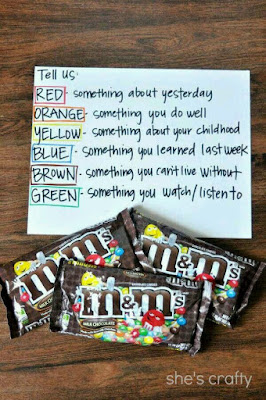 Tell us:
RED - something about yesterday
ORANGE - something you do well
YELLOW - something about your childhood
BLUE - something you learned last week
BROWN - something you can't live without
GREEN - something you watch/listen to
m&m's
m&m's
m&m's
MILK CHOCOLATE
she's crafty